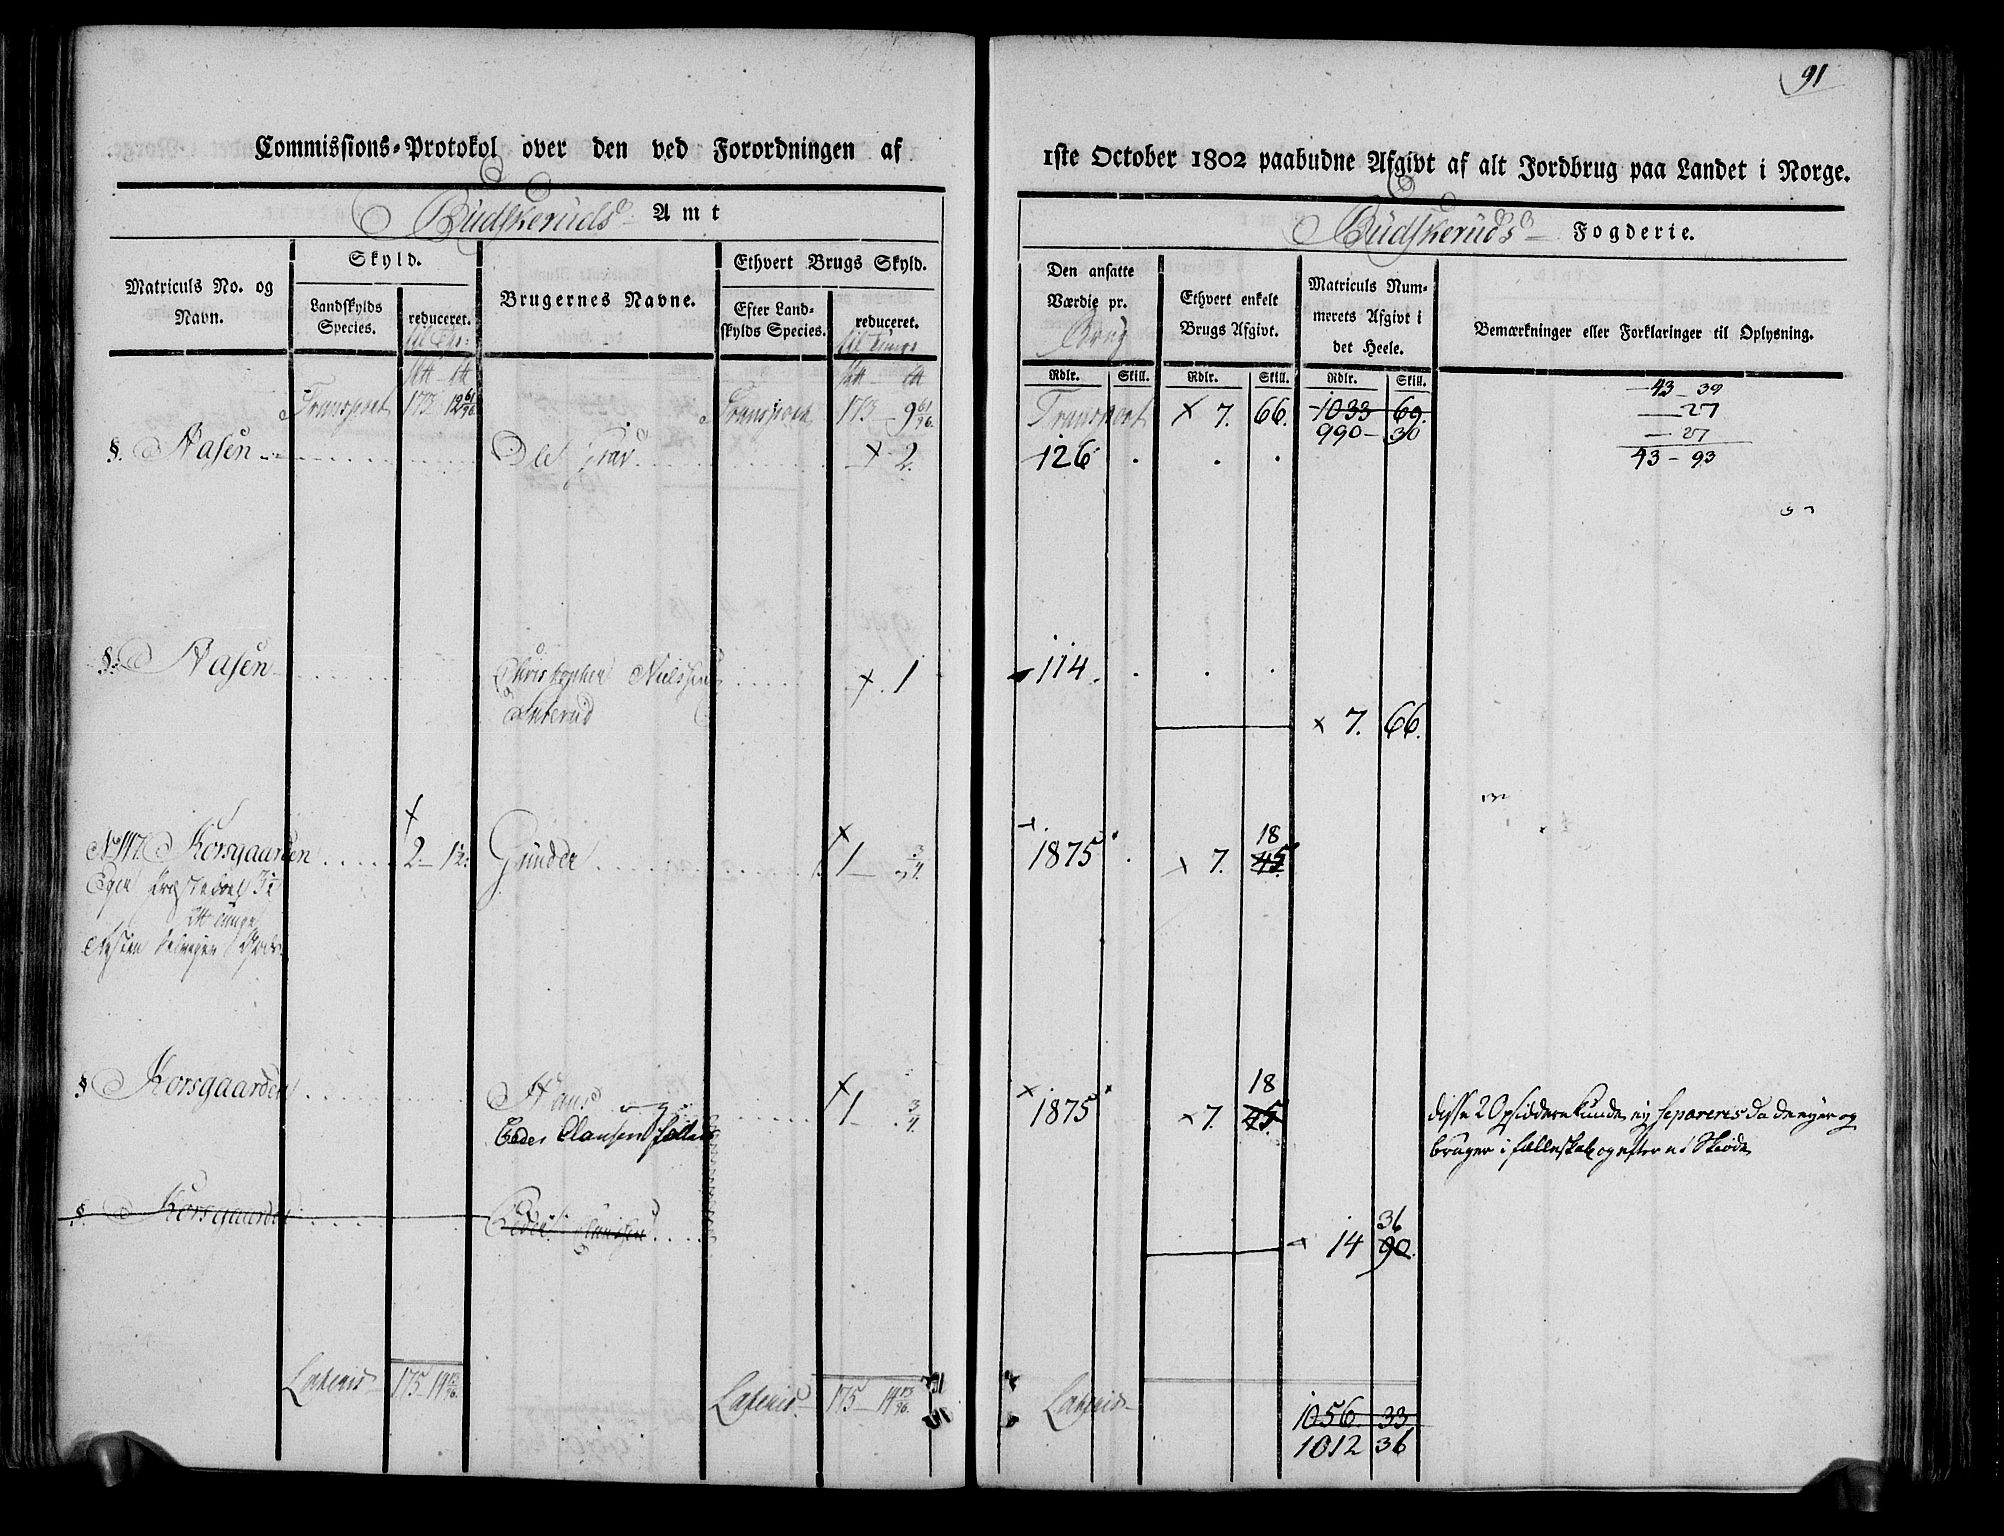 91
Commissions-Protokol over den ved Forordningen af
1ste October 1802 paabudne Afgivt af alt Jordbrug paa Landet i Norge.
Budskeruds Amt
Budskeruds Fogderie.
Matriculs No. og Navn.
Skyld.
Landskylds Species.
reduceret.
Brugernes Navne.
Ethvert Brugs Skyld.
Efter Landskylds Species.
reduceret.
til Tunge
Den ansatte Værdie pr.
Brug
Ethvert enkelt Brugs Afgivt.
Matriculs Nummerets Afgivt i det Heele.
Bemærkninger eller Forklaringer til Oplysning.
Rdlr. Skill. Rdlr. Skill. Rdlr. Skill.
Transport 173 - 12 61/96 Transport 173 - 9 61/96 Transport × 7. 66. 1033 69. 43 - 39
990 - 30 - 27
- 27
§. Aasen Ole × 2. 126 . . . 43 - 93
§. Aasen Christopher Nielssen × 1 114 . . .
× 7. 66.
No 117. Korsgaarden 2 - 12. Gunder 1 - 3/4 1875 . × 7. 18 45
§ Korsgaarden Hans og 1 - 3/4 1875 × 7. 18 45 disse 2 Opsiddere kunde ey separeres da de eyer og
Peder Clausen fælles bruger i fælleskab og efter et Skiøde
§. Korsgaarden Peder Clausen
14 36 90
Lateris 175 - 14 13/96 Lateris 175 - 14 13/96 Lateris 1056. 33
1012 36